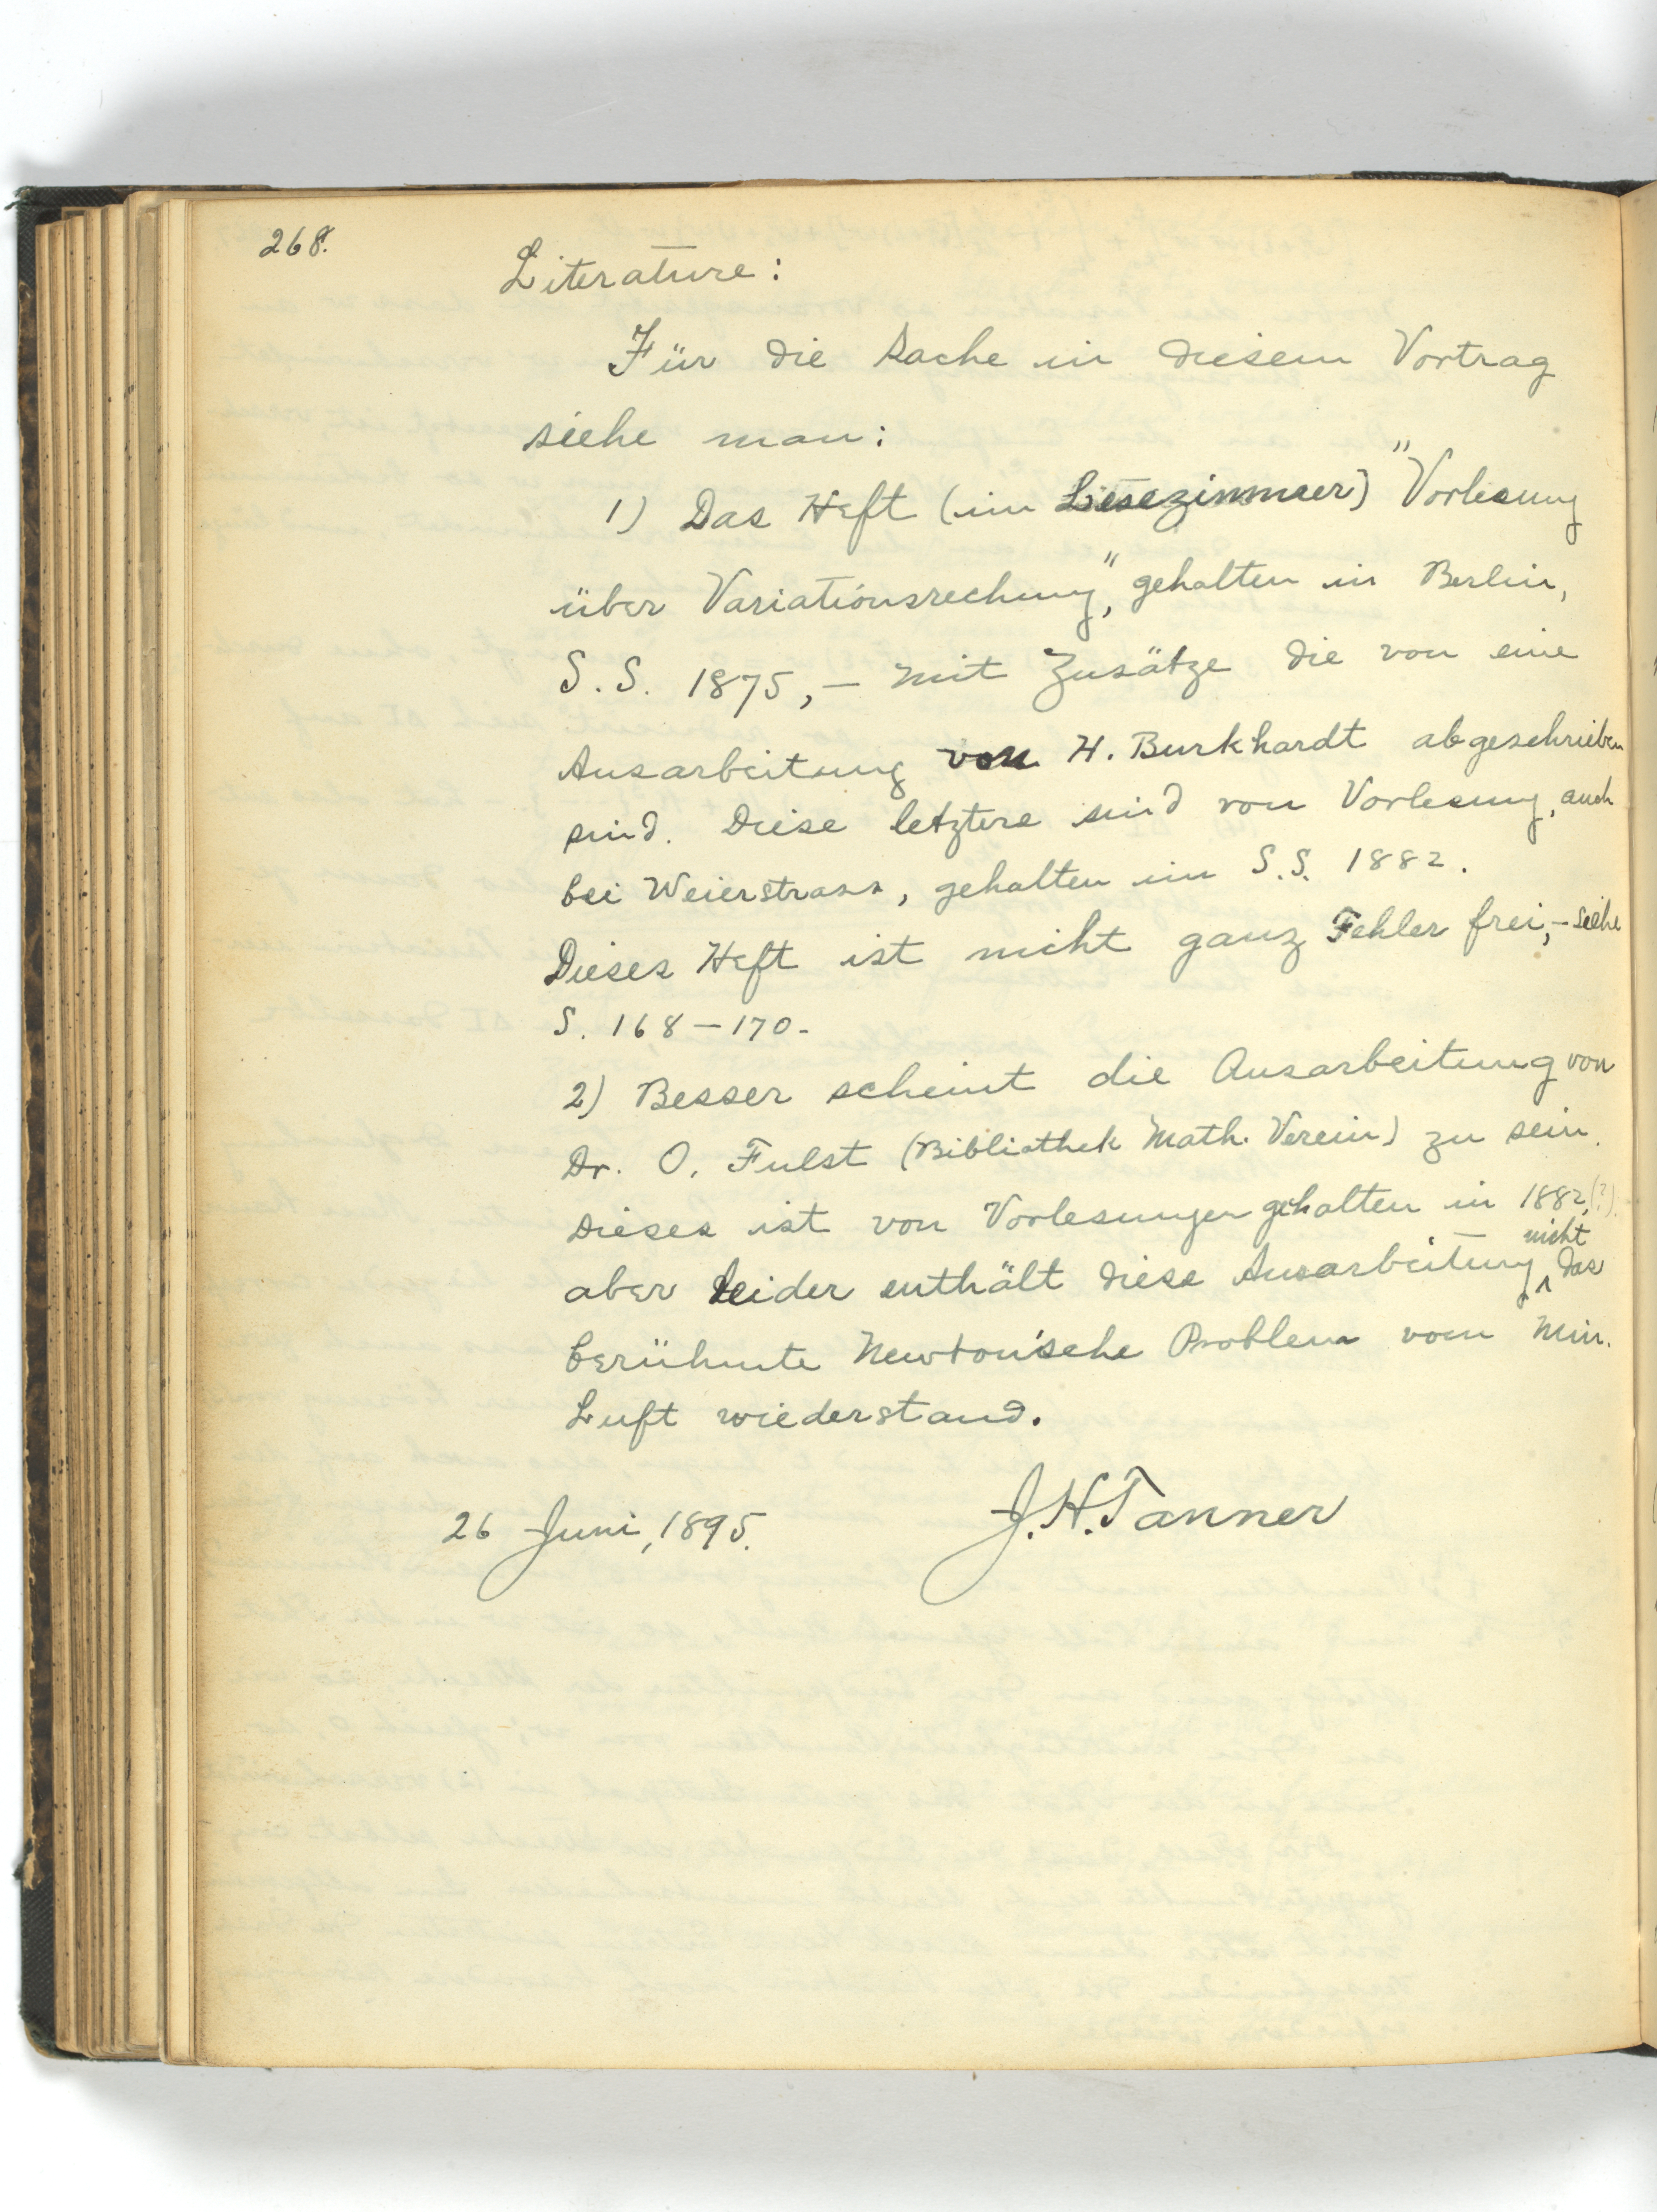 268.
Literature:
Für die Sache in diesem Vortrag
siehe man:
1) Das Heft (im Lesezimmer) "Vorlesung
über Variationsrechung", gehalten in Berlin,
S. S. 1875, – mit Zusätze die von eine
Ausarbeitung von H. Burkhardt abgeschrieben
sind. Diese letztere sind von Vorlesung, auch
bei Weierstrass, gehalten im S. S. 1882.
Dieses Heft ist nicht ganz Fehler frei, – siehe
S. 168 – 170.
2) Besser scheint die Ausarbeitung von
Dr. O. Fulst (Bibliothek Math. Verein) zu sein.
Dieses ist von Vorlesungen gehalten in 1882, (?).
aber leider enthält diese Ausarbeitung nicht das
berühmte Newton'sche Problem vom Min.
Luft wiederstand.
26 Juni, 1895. J. H. Tanner